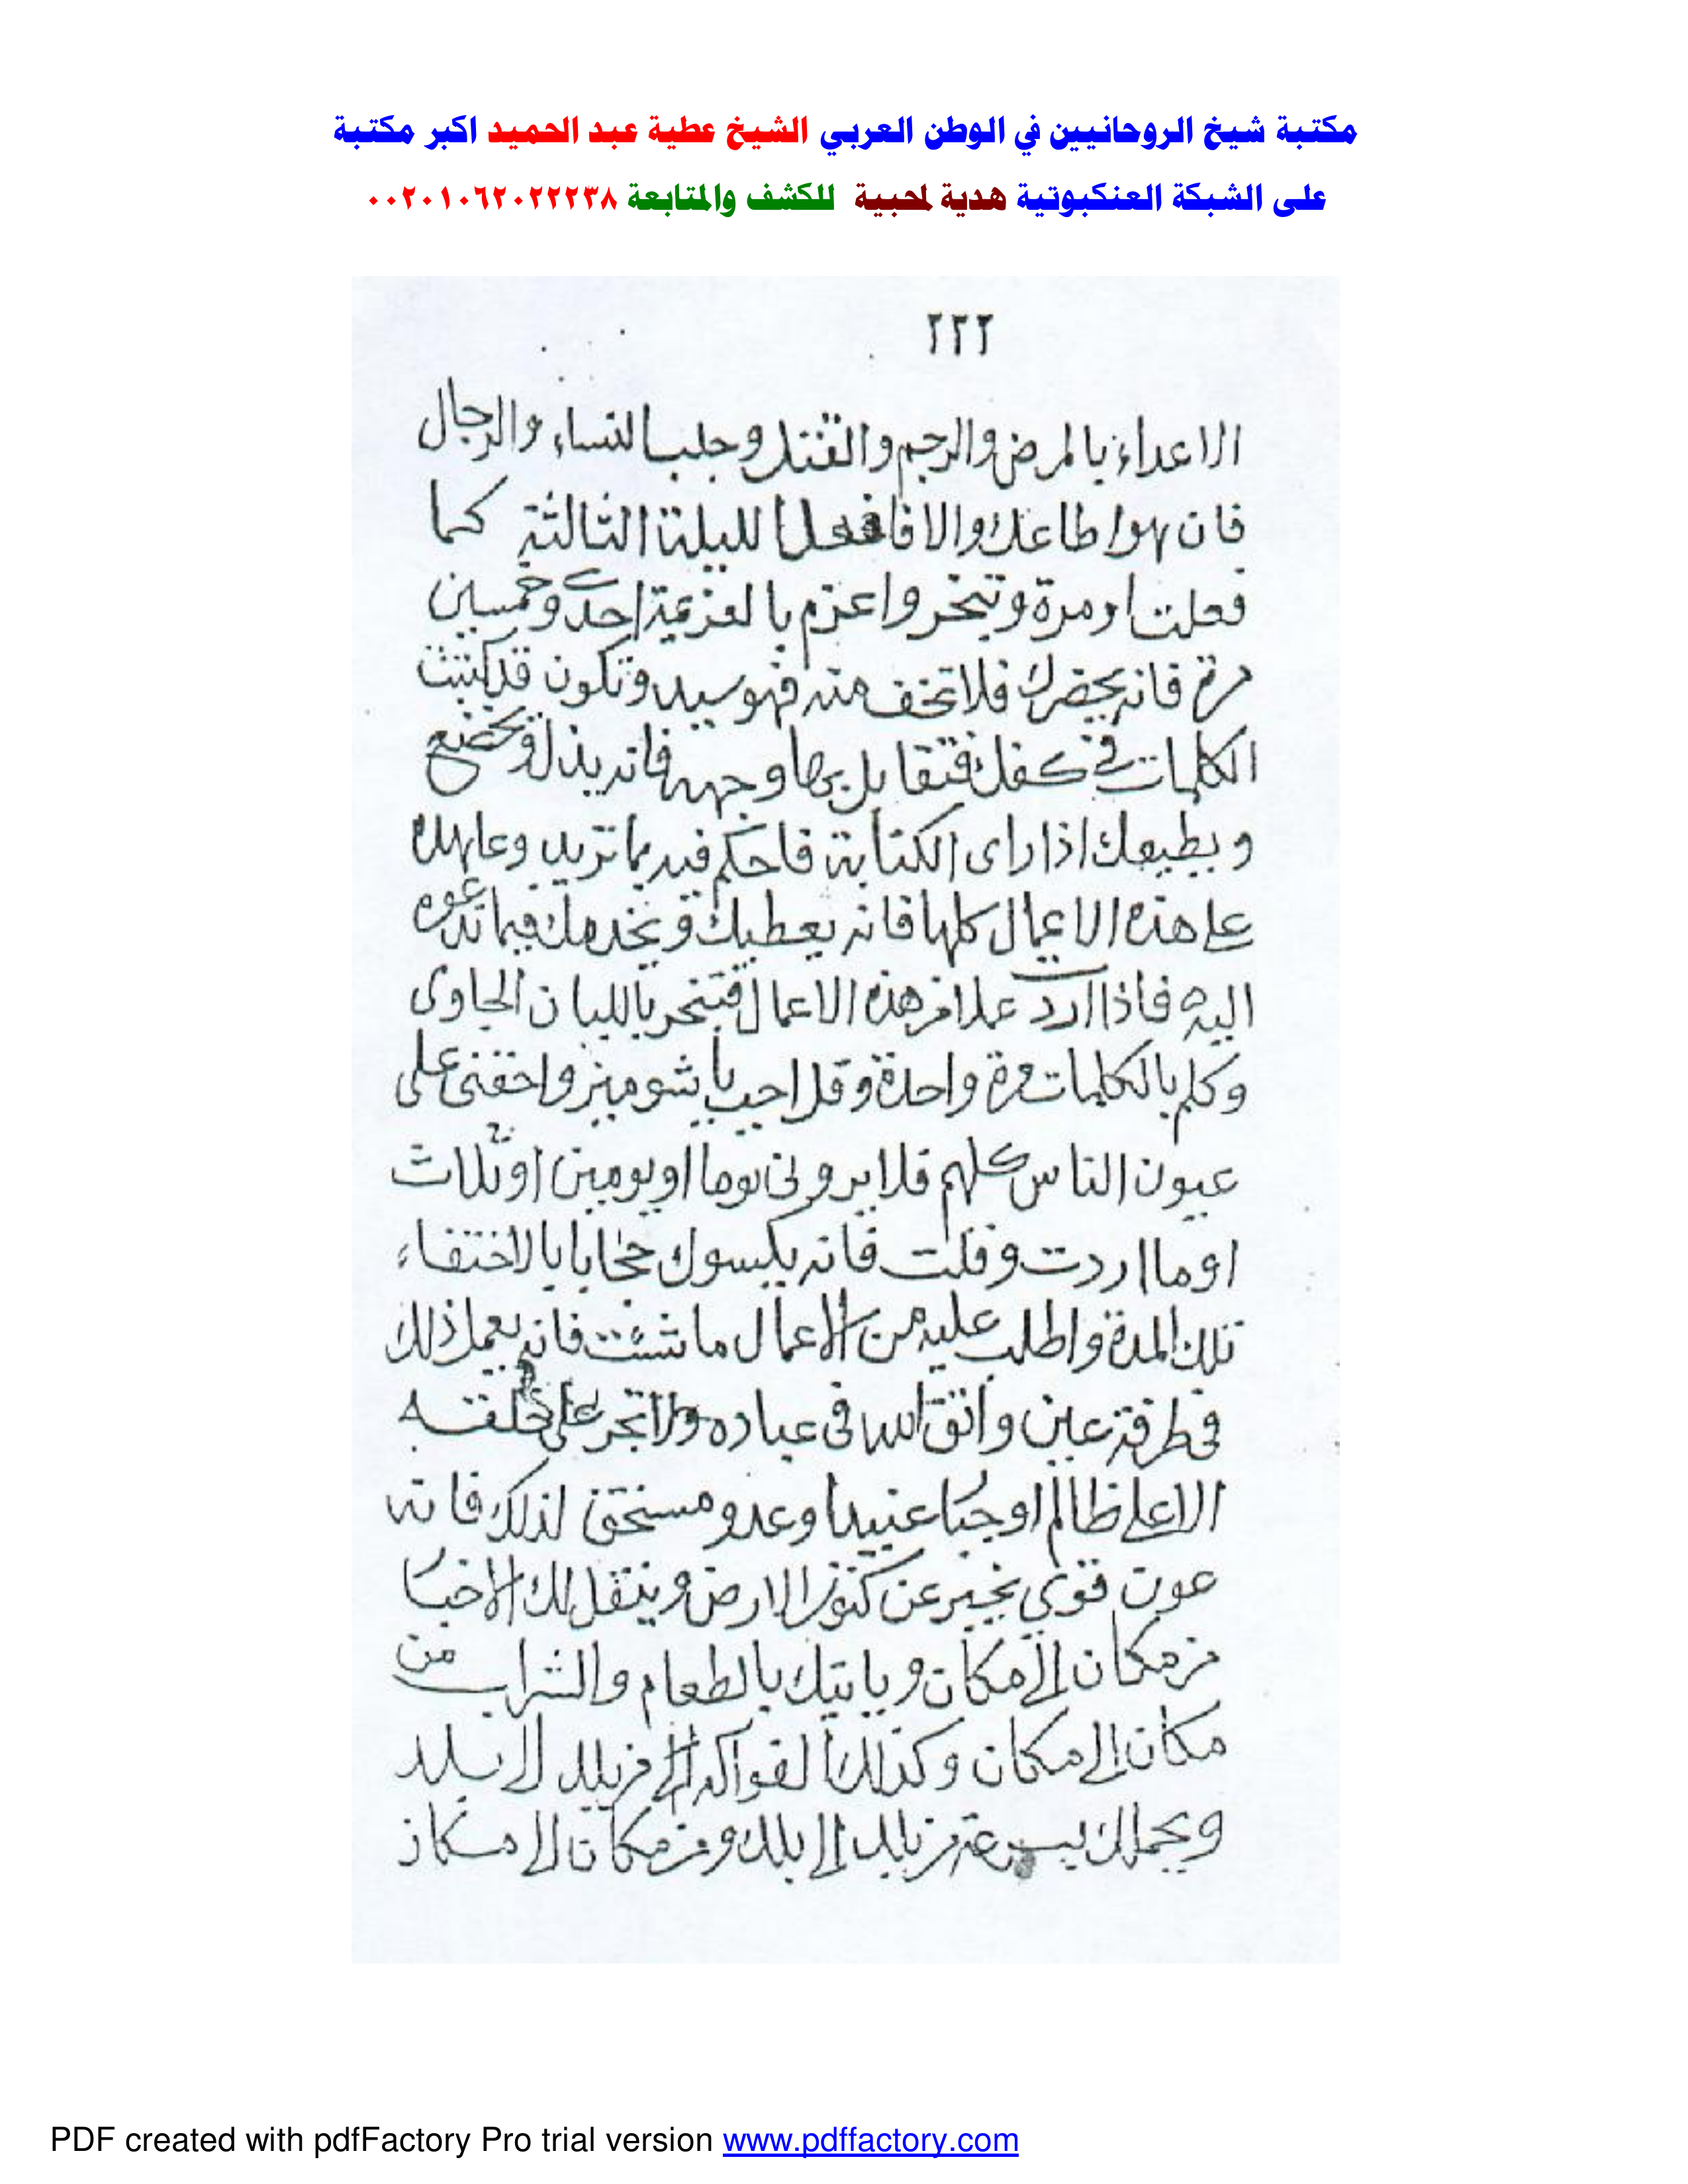 مكتبة شيخ الروحانيين في الوطن العربي الشيخ عطية عبد الحميد اكبر مكتبة
على الشبكة العنكبوتية هدية لمحبية للكشف والمتابعة ٠٠٢٠١٠٦٢٠٢٢٢٣٨
٢٢٢
الاعداء بالمرض والرجم والقتل وجلب النساء والرجال
فان هوا طاعك والا فافعل الليلة الثالثة كما
فعلت اومرة وتبخر واعزم بالعزيمة احدى وخمسين
مرة فانه يحضرك فلا تخف منه فهو سيد وتكون قد كتبت
الكلمات في كفك فتقابل بها وجهه فانه يذل ويخضع
ويطيعك اذا راى الكتابة فاحكم فيه بما تريد وعاهده
على هذه الاعمال كلها فانه يعطيك ويخدمك فيما تدعوه
اليه فاذا اردت عملا من هذه الاعمال فتبخر باللبان الجاوى
وكلم بالكلمات مرة واحدة وقل اجب يا شوميز واخفنى على
عيون الناس كلهم فلا يرونى يوما او يومين او ثلاث
او ما اردت وقلت فانه يكسوك حجابا بالاختفاء
تلك المدة واطلب عليه من الاعمال ما شئت فانه يعمل ذلك
فى طرفة عين واتق الله فى عباده ولا تجر على خلقه
الا على ظالم او جبا عنيدا وعدو مستحق لذلك فانه
عون قوي يخبر عن كنوز الارض وينقل لك الاخبا
من مكان الى مكان وياتيك بالطعام والشراب من
مكان الى مكان وكذلك الفواكه من بلد الى بلد
ويحملك بسرعة من بلد الى بلد ومن مكان الى مكان
PDF created with pdfFactory Pro trial version www.pdffactory.com